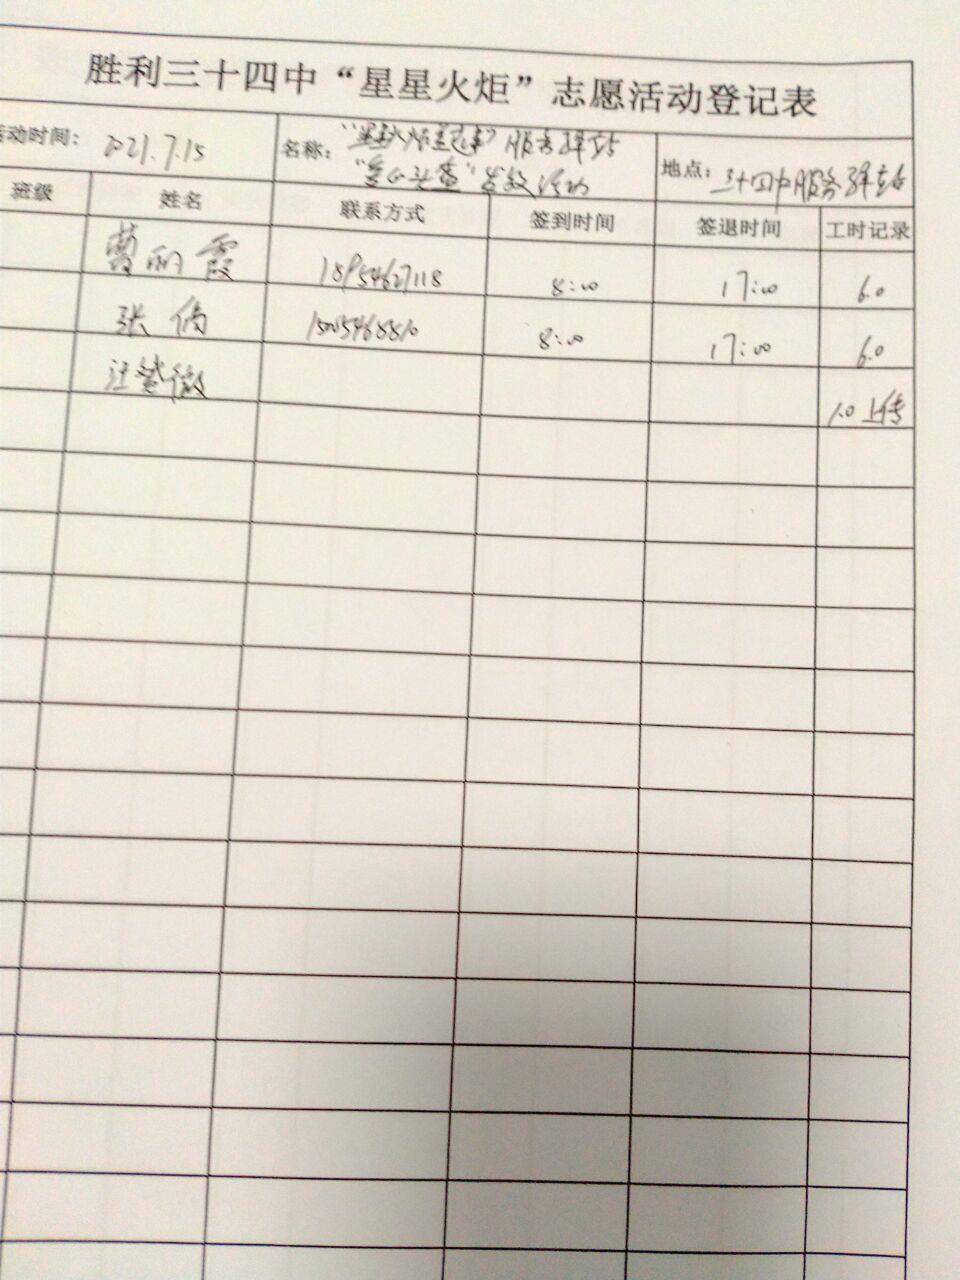 胜利三十四中“星星火炬”志愿活动登记表
活动时间： 2021.7.15 名称： 服务驿站 地点：三十四中服务驿站
活动
班级 姓名 联系方式 签到时间 签退时间 工时记录
霞 18954627118 8:00 17:00 6.0
张倩 15005468810 8:00 17:00 6.0
汪 微 1.0上传